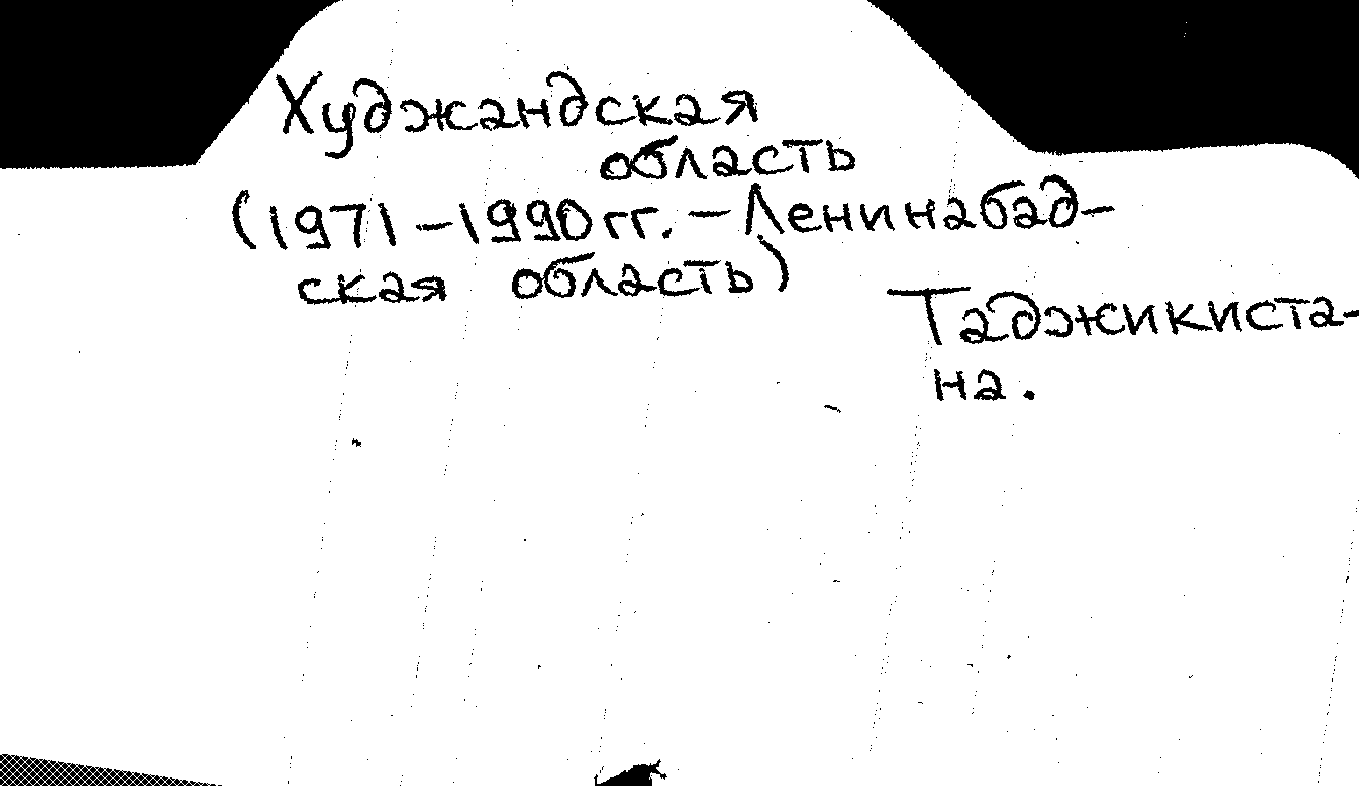 Худжандская
область
(1971-1990 гг. - Ленинабад-
ская область)
Таджикиста-
на.